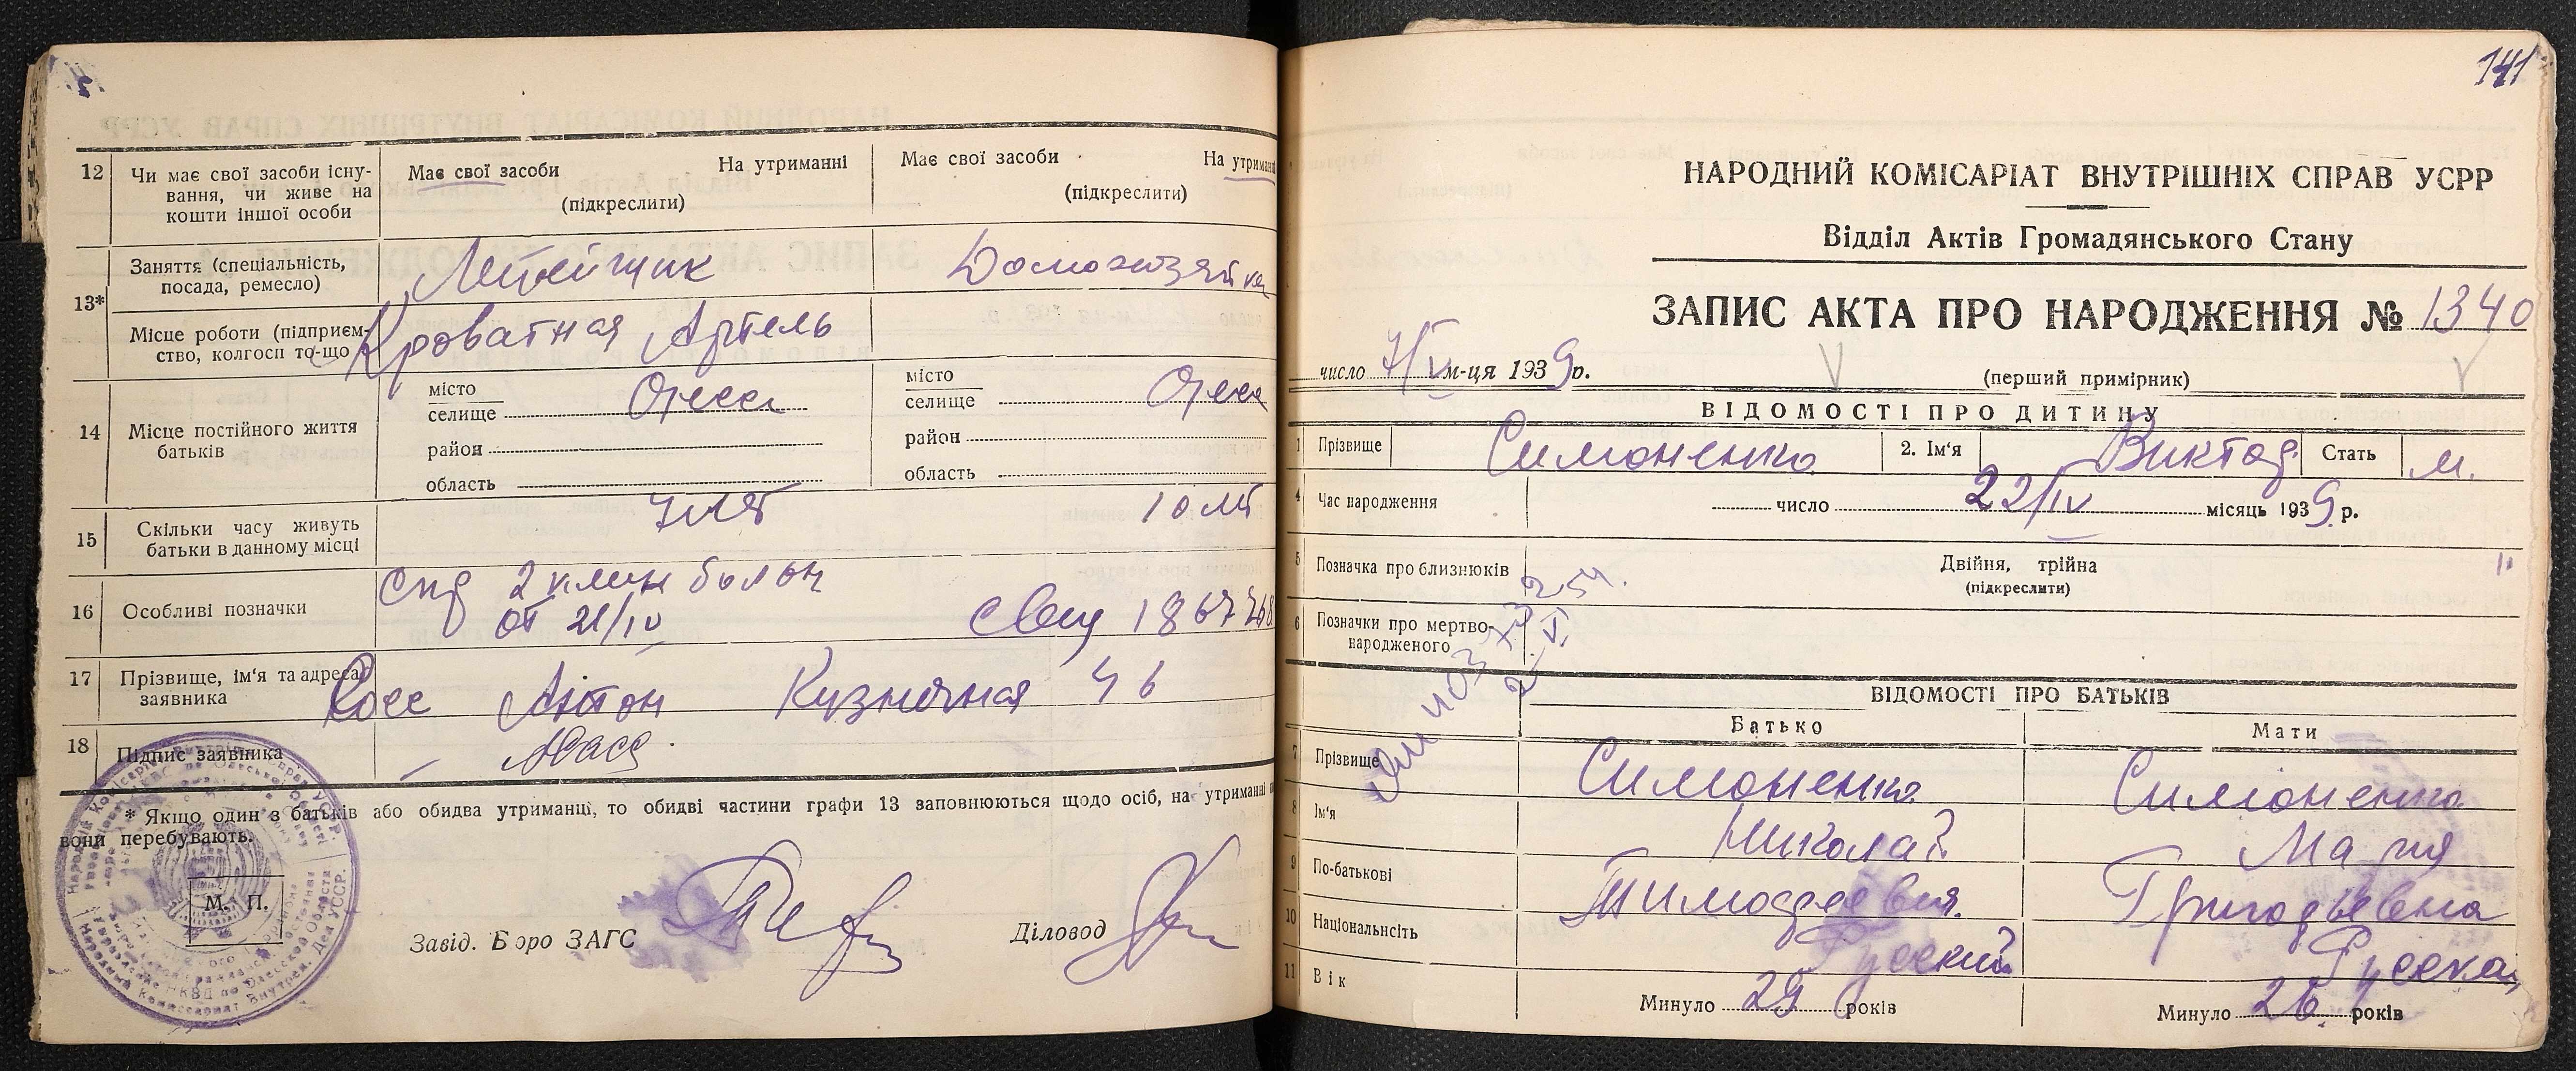 12 Чи має свої засоби існу-
вання, чи живе на
кошти іншої особи
Має свої засоби На утриманні
(підкреслити)
Має свої засоби На утриманні
(підкреслити)
13* Заняття (спеціальність,
посада, ремесло)
Литейщик Домохозяйка
Місце роботи (підприєм-
ство, колгосп то-що
Кроватная Артель
14 Місце постійного життя
батьків
місто
селище Одесса
район
область
місто
селище Одесса
район
область
15 Скільки часу живуть
батьки в данному місці
7 лет 10 лет
16 Особливі позначки
спр 2 клин больн
от 21/IV
17 Прізвище, ім'я та адреса
заявника
Антон Кузнечная 46
18 Підпис заявника
* Якщо один з батьків або обидва утриманці, то обидві частини графи 13 заповнюються щодо осіб, на утриманні
вони перебувають.
М. П.
Завід. Бюро ЗАГС Діловод
141
НАРОДНИЙ КОМІСАРІАТ ВНУТРІШНІХ СПРАВ УСРР
Відділ Актів Громадянського Стану
ЗАПИС АКТА ПРО НАРОДЖЕННЯ № 1340
число 7/V м-ця 1939 р.
(перший примірник)
ВІДОМОСТІ ПРО ДИТИНУ
1 Прізвище Симоненко 2. Ім'я Виктор Стать м.
4 Час народження число 22/IV місяць 1939 р.
5 Позначка про близнюків Двійня, трійна
(підкреслити)
6 Позначки про мертво-
народженого
ВІДОМОСТІ ПРО БАТЬКІВ
Батько Мати
7 Прізвище Симоненко Симоненко
8 Ім'я Николай Мария
9 По-батькові Тимофеевич Григорьевна
10 Національність Русский Русская
11 Вік Минуло 29 років Минуло 26 років